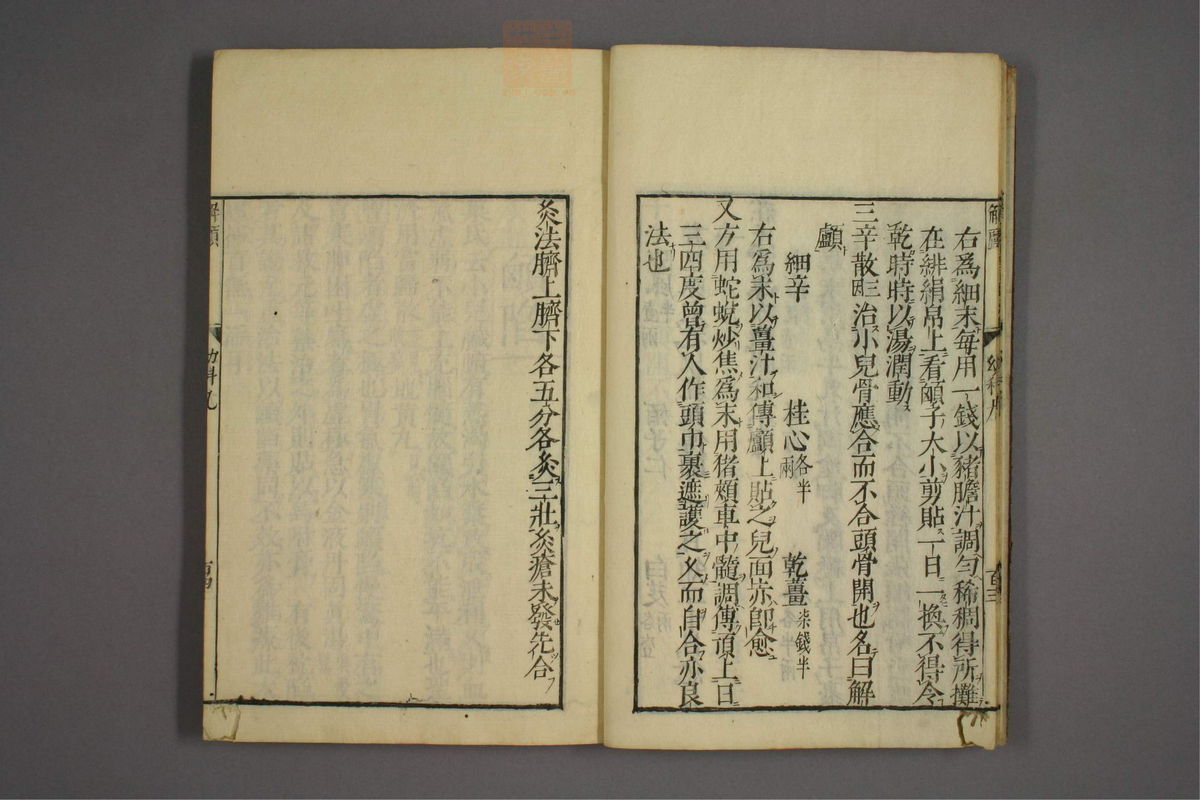 右爲細末每用一錢以猪膽汁調勻稀稠得所攤
在緋絹帛上看顖子大小剪貼一日一換不得令
乾時時以湯潤動
三辛散因三治小兒骨應合而不合頭骨開也名曰解
顱
細辛 桂心各半兩 乾薑柒錢半
右爲末以薑汁和傅顱上貼之兒面赤卽愈
又方用蛇蛻炒焦爲末用猪頰車中髓調傅頂上日
三四度曾有人作頭巾裹遮護之久而自合亦良
法也
解顱
幼科九
百三
灸法臍上臍下各五分各灸三壯灸瘡未發先合
解顱
幼科九
百四